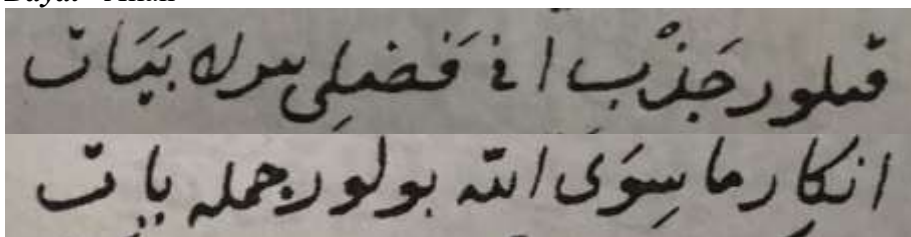 قیلور جَذْب انی فَضلِی برله بَیَات
انکار ماسِوَی الله بولور جمله یات